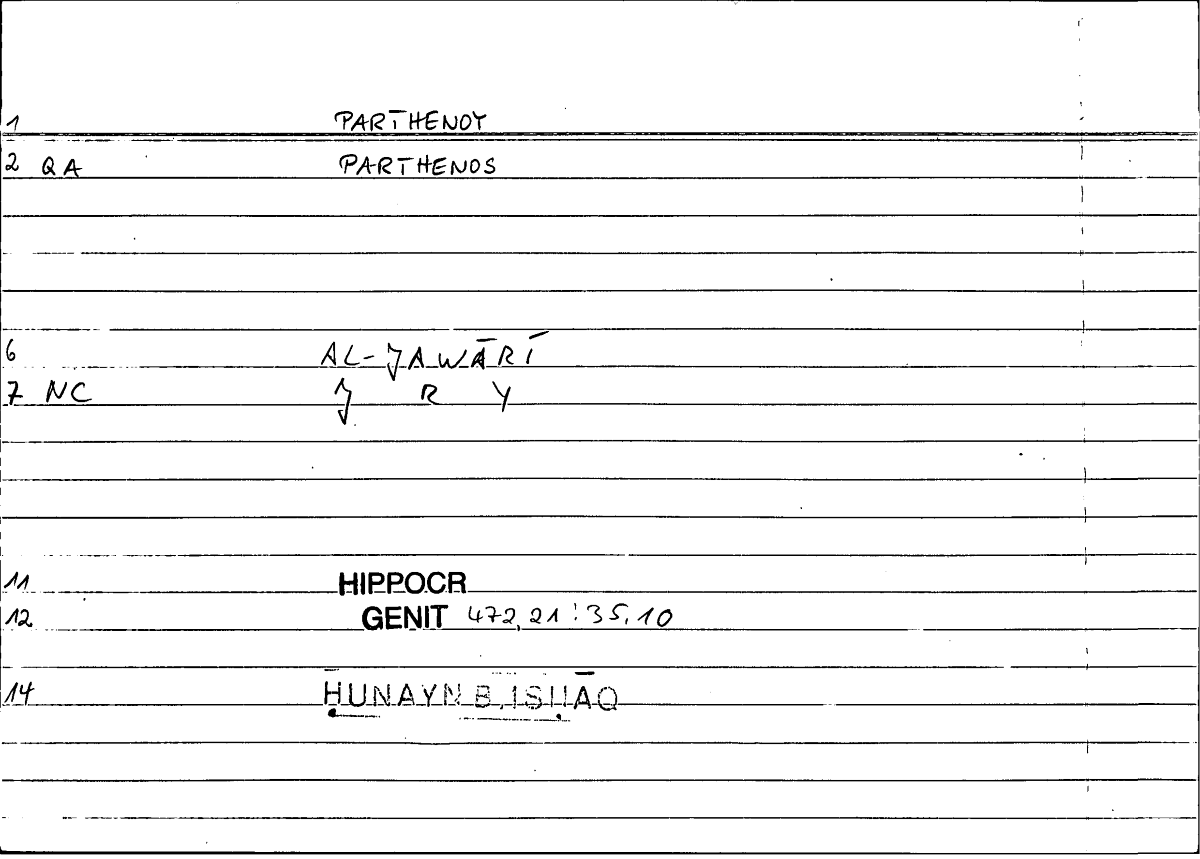 1 PARTHENOY
2 QA PARTHENOS
6 AL-JAWĀRĪ
7 NC J R Y
11 HIPPOCR
12 GENIT 472,21 : 35,10
14 ḤUNAYN B. ISḤĀQ